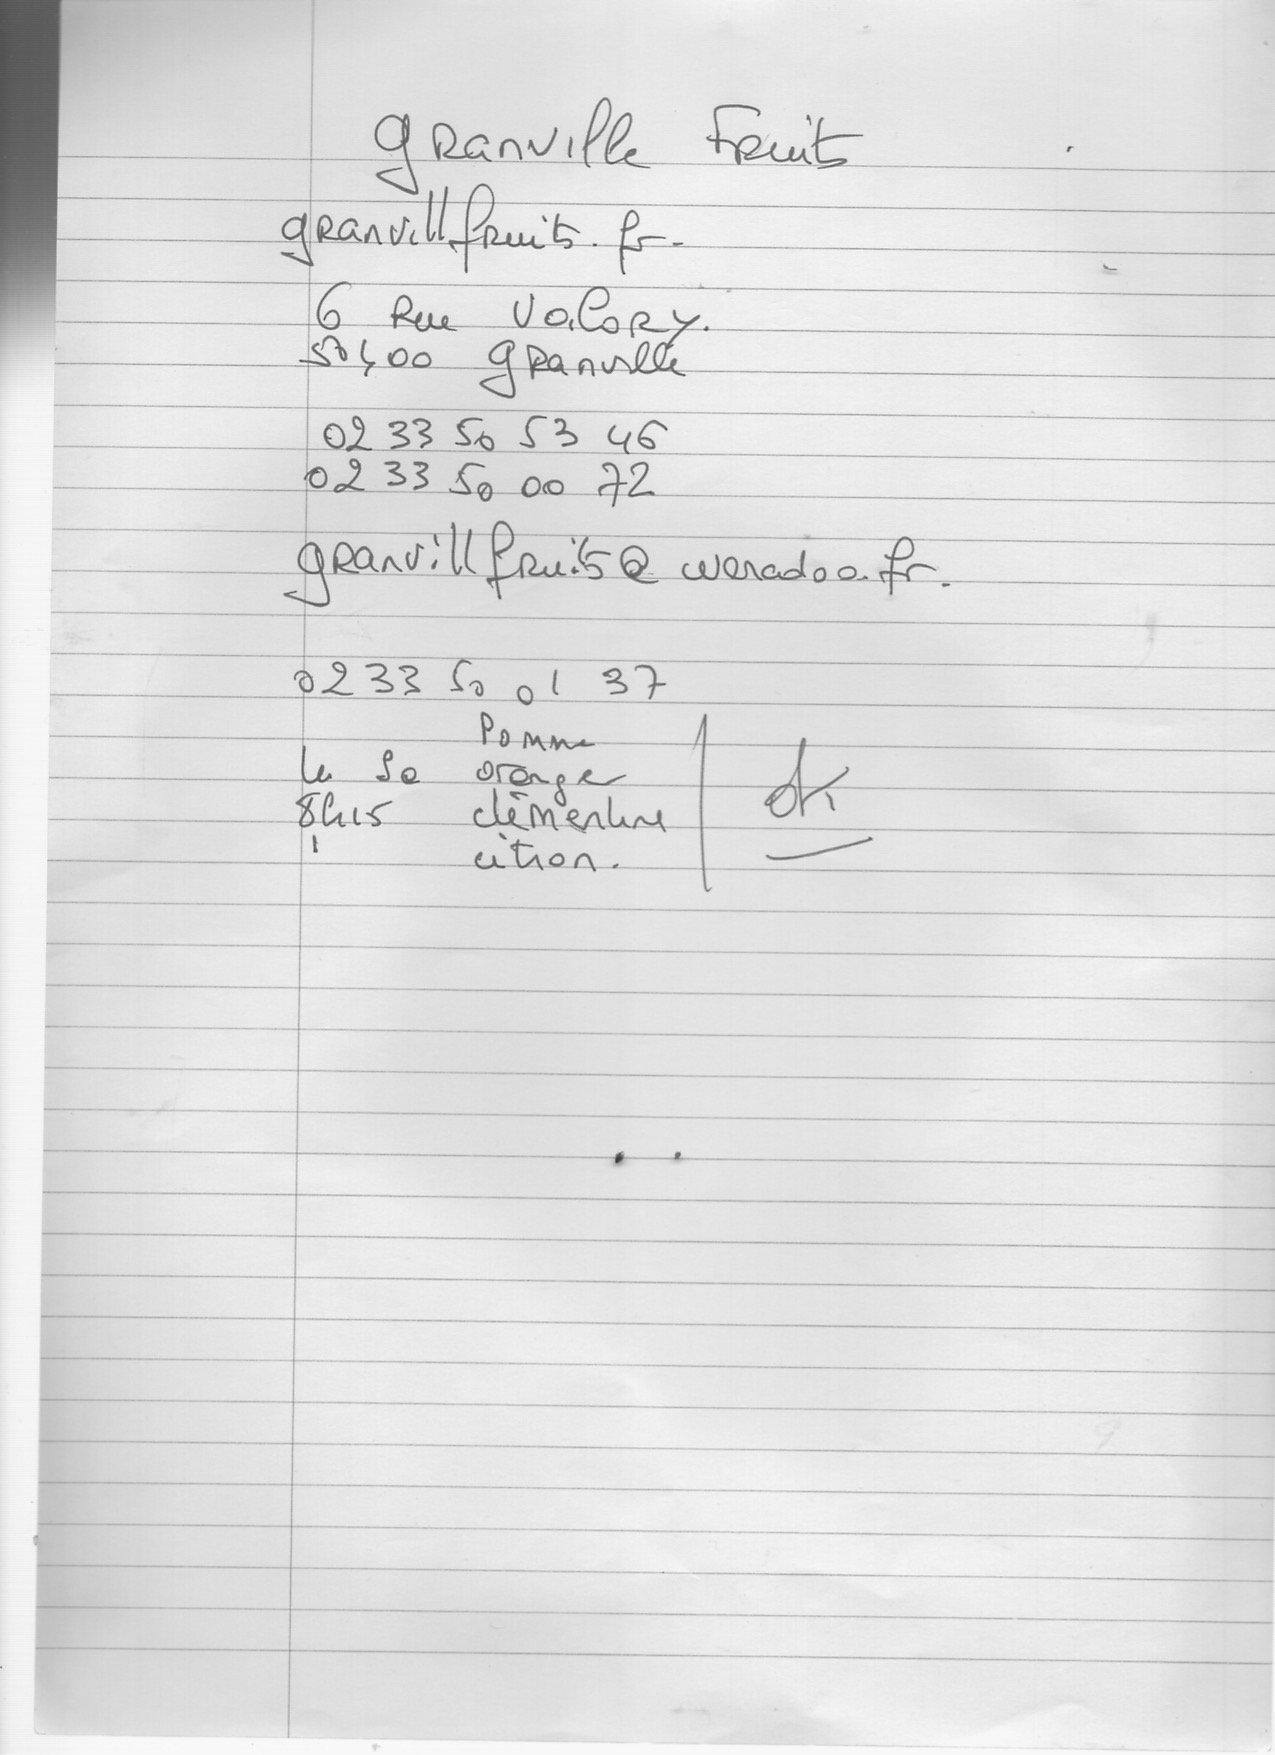 Granville Fruits
granvillfruits.fr.
6 Rue Valory.
50400 Granville
02 33 50 53 46
02 33 50 00 72
granvillfruits@wanadoo.fr.
02 33 50 01 37
Pomme
le 30 orange
8h15 clémentine
citron.
ok